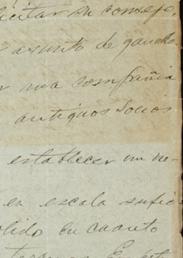 licitar su consejo
asunto de ganado
una compañia
antiguos socios
establecer un ne-
en escala sufi
en cuanto